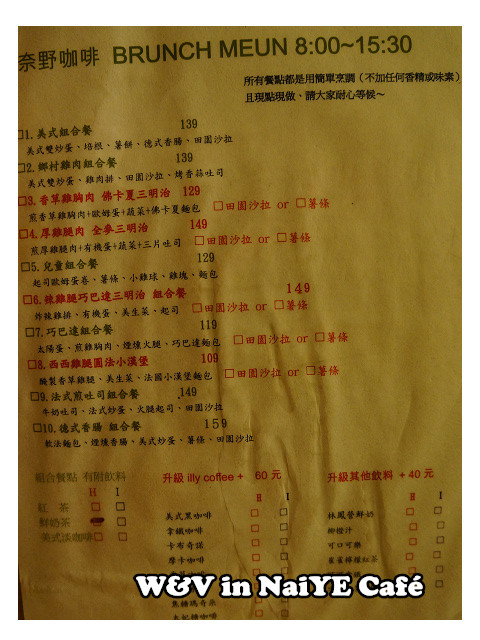 奈野咖啡 BRUNCH MEUN 8:00~15:30
所有餐點都是用簡單烹調（不加任何香精或味素）
且現點現做、請大家耐心等候～
□1.美式組合餐 139
美式雙炒蛋、培根、薯餅、德式香腸、田園沙拉
□2.鄉村雞肉組合餐 139
美式雙炒蛋、雞肉排、田園沙拉、烤香蒜吐司
□3.香草雞胸肉 佛卡夏三明治 129
煎香草雞胸肉+歐姆蛋+蔬菜+佛卡夏麵包 □田園沙拉 or □薯條
□4.厚雞腿肉 全麥三明治 149
煎厚雞腿肉+有機蛋+蔬菜+三片吐司 □田園沙拉 or □薯條
□5.兒童組合餐 129
起司歐姆蛋卷、薯條、小雞球、雞塊、麵包
□6.辣雞腿巧巴達三明治 組合餐 149
炸辣雞排、有機蛋、美生菜、起司 □田園沙拉 or □薯條
□7.巧巴達組合餐 119
太陽蛋、煎雞胸肉、煙燻火腿、巧巴達麵包 □田園沙拉 or □薯條
□8.西西雞腿圓法小漢堡 109
醃製香草雞腿、美生菜、法國小漢堡麵包 □田園沙拉 or □薯條
□9.法式煎吐司組合餐 149
牛奶吐司、法式炒蛋、火腿起司、田園沙拉
□10.德式香腸 組合餐 159
軟法麵包、煙燻香腸、美式炒蛋、薯條、田園沙拉
組合餐點 有附飲料
H I
紅 茶 □ □
鮮奶茶 □
美式淡咖啡 □ □
升級 illy coffee + 60 元
H I
美式黑咖啡 □ □
拿鐵咖啡 □ □
卡布奇諾 □ □
摩卡咖啡 □ □
焦糖瑪奇朵 □ □
升級其他飲料 + 40 元
H I
林鳳營鮮奶 □ □
柳橙汁 □ □
可口可樂 □ □
蜜蜂檸檬紅茶 □ □
W&V in NaiYE Café